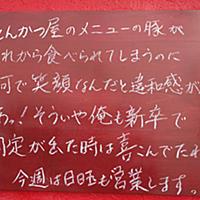 とんかつ屋のメニューの豚が
れから食べられてしまうのに
何で笑顔なんだと違和感が
あっ!そういや俺も新卒で
内定が出た時は喜こんでたわ
今週は日曰も営業します。